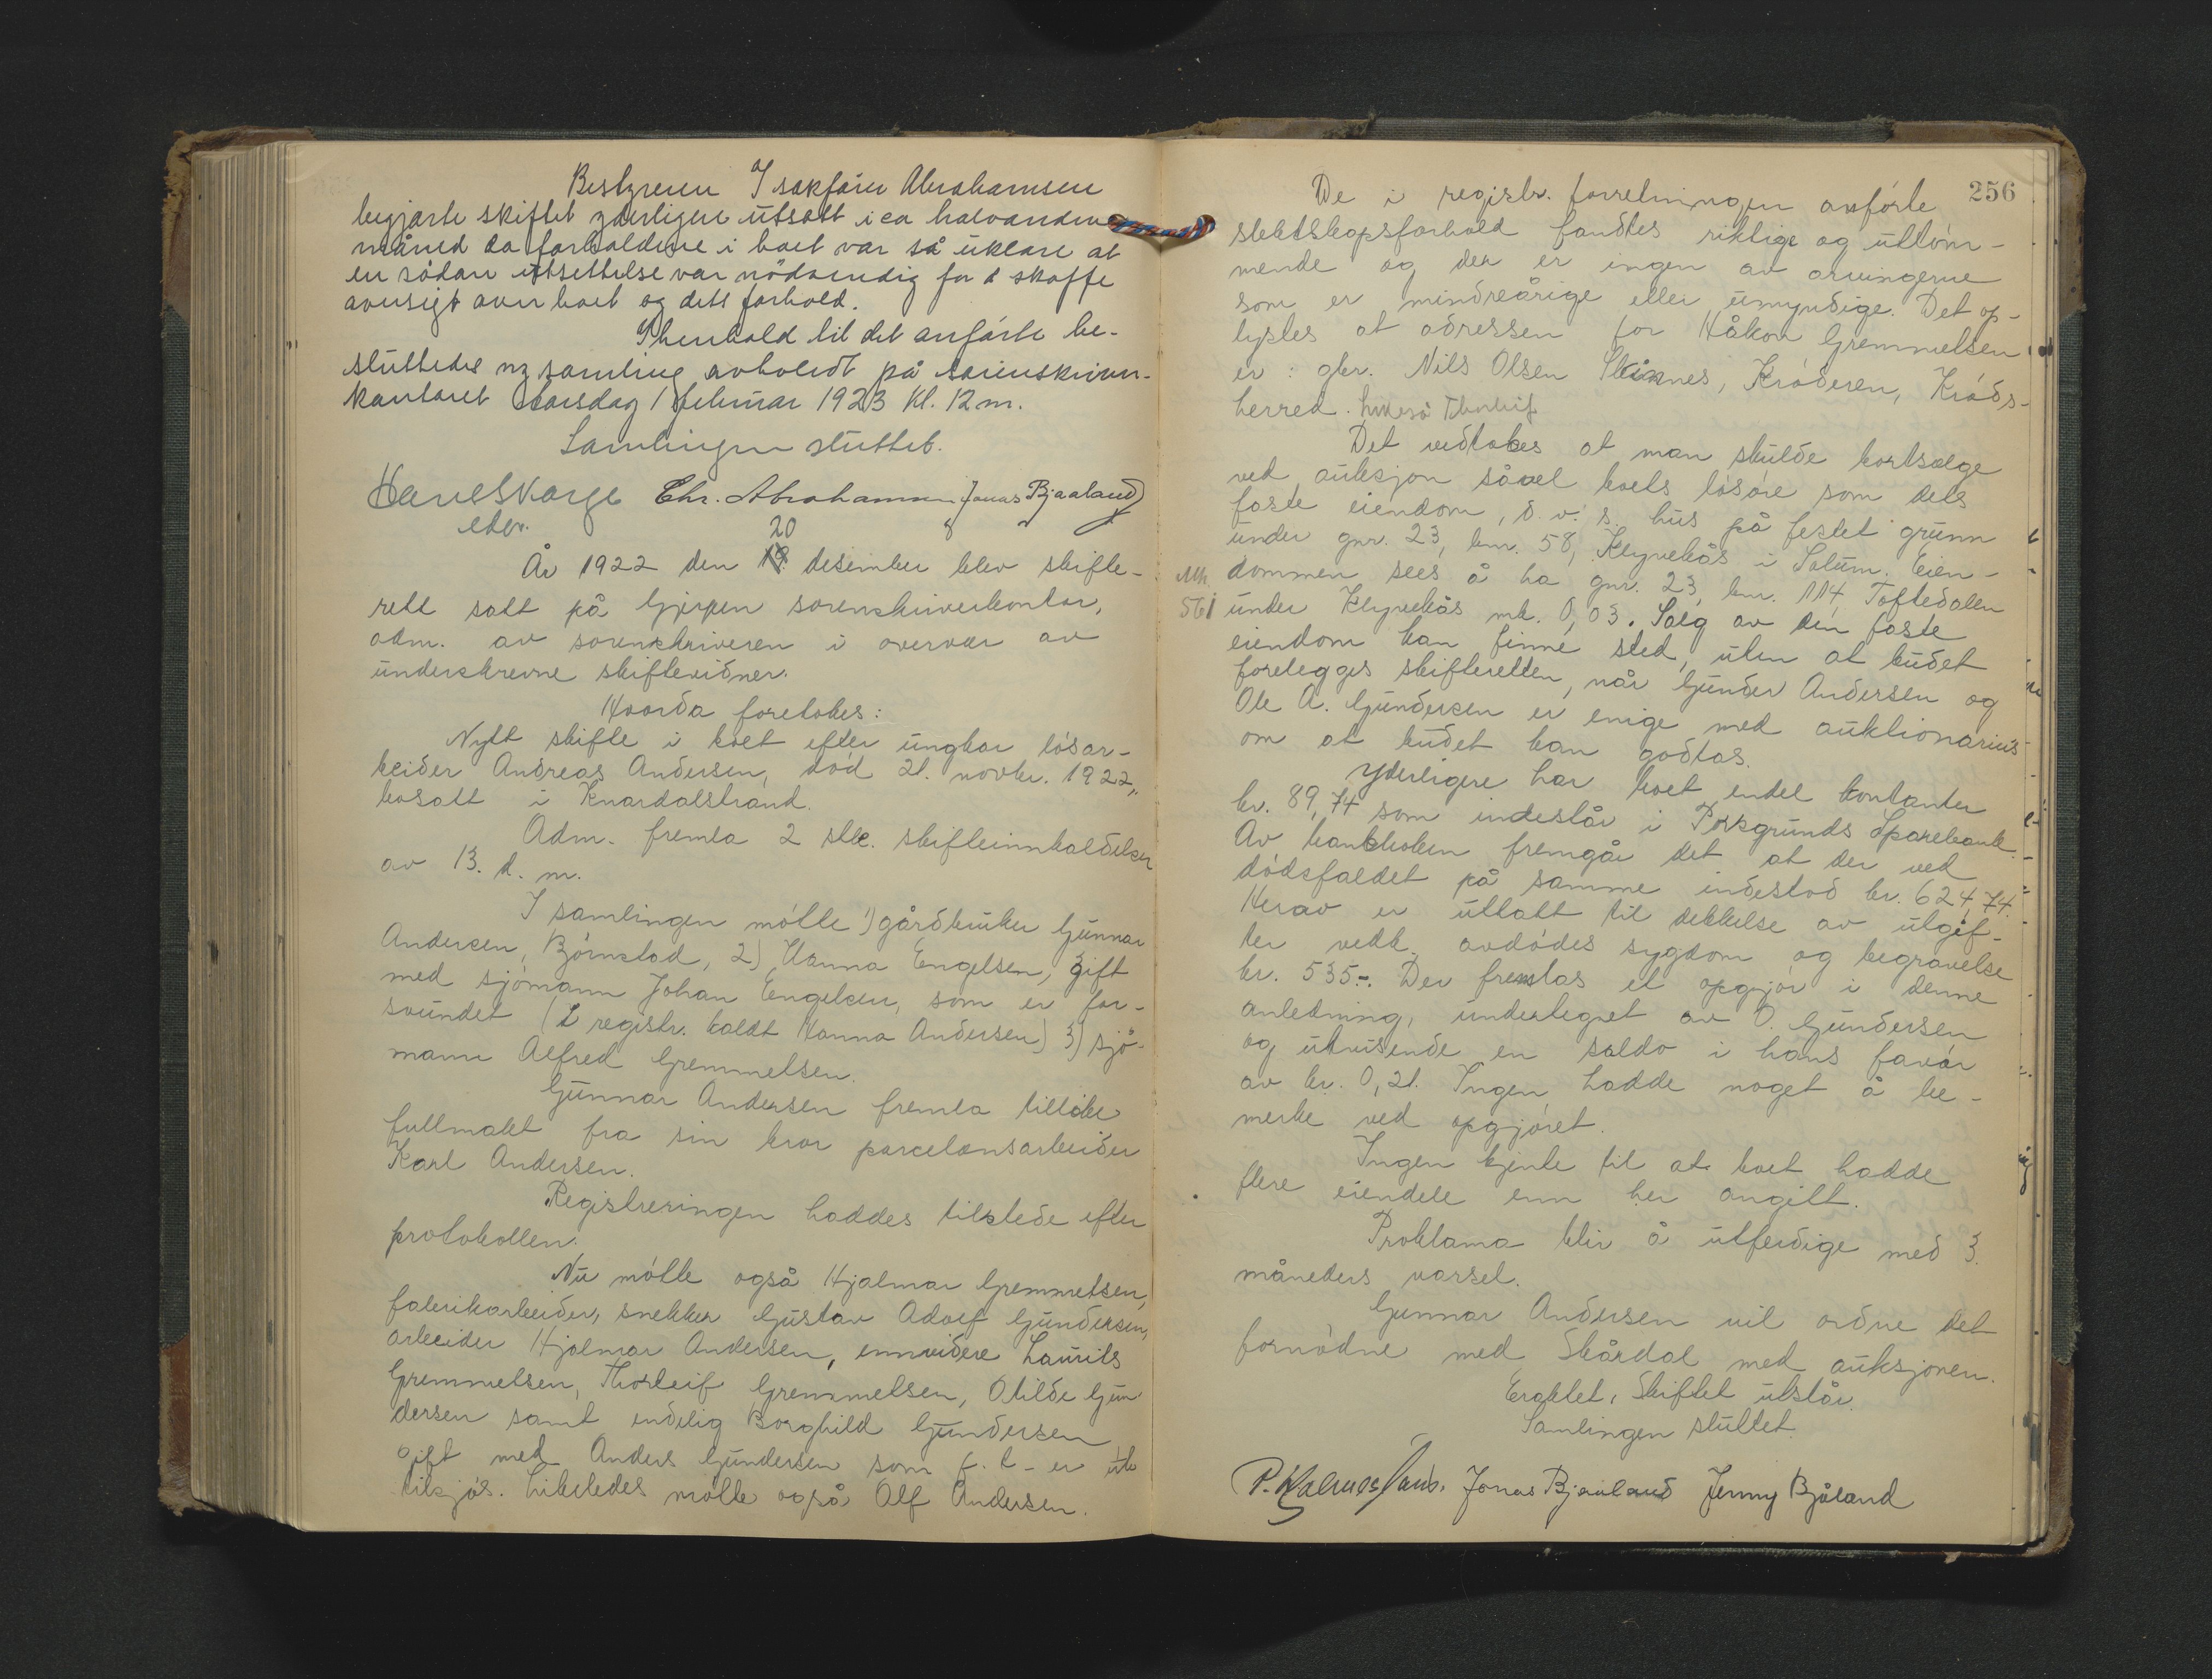 Bestyreren O sakfører Abrahamsen
begjærte skiftet yderligere utsatt i ca halvanden
måned da forholdene i boet var så uklare at
en sådan utsettelse var nödvendig for å skaffe
oversigt over boet og dets forhold.
I henhold til det anförte be-
sluttedes ny samling avholdt på sorenskriver-
kontoret torsdag 1 februar 1923 kl. 12 m.
Samlingen sluttet.
Chr. Abrahamsen Jonas Bjaaland
20
År 1922 den 19. desember blev skifte-
rett satt på Gjerpen sorenskriverkontor,
adm. av sorenskriveren i overvær av
underskrevne skiftevidner.
Hvorda foretokes:
Nytt skifte i boet efter ungkar lösar-
beider Andreas Andersen, död 21. novbr. 1922,
bosatt i Knardalstrand.
Adm. fremla 2 stk. skifteinnkaldelser
av 13. d. m.
I samlingen mötte 1) gårdbruker Gunnar
Andersen, Björnstad, 2) Hanna Engelsen, gift
med sjömann Johan Engelsen, som er for-
svundet (i registr. kaldt Hanna Andersen) 3) sjö-
mann Alfred Gremmelsen.
Gunnar Andersen fremla tillike
fullmakt fra sin bror porcelænsarbeider
Karl Andersen.
Registreringen haddes tilstede efter
protokollen.
Nu mötte også Hjalmar Gremmetsen,
fabrikarbeider, snekker Gustav Adolf Gundersen,
arbeider Hjalmar Andersen, ennvidere Laurits
Gremmelsen, Thorleif Gremmelsen, Otilde Gun-
dersen samt endelig Borghild Gundersen
gift med Anders Gundersen som f. t. er ute
tilsjös. Likeledes mötte også Olf Andersen.
256
De i registr. forretningen anförte
slektskapsforhold fandtes riktige og uttöm-
mende og der er ingen av arvingerne
som er mindreårige eller umyndige. Det op-
lystes at adressen for Håkon Gremmelsen
er: gbr. Nils Olsen Slåknes, Kröderen, Kröds-
herred.
Det vedtokes at man skulde bortsælge
ved auksjon såvel boets lösöre som dets
faste eiendom, d. v. s. hus på festet grunn
under gnr. 23, bnr. 58, Klyvekås i Solum. Eien-
dommen sees å ha gnr. 23, bnr. 114 Toftedalen
561 under Klyvekås mk. 0,03. Salg av den faste
eiendom kan finne sted, uten at budet
forelegges skifteretten, når Gunder Andersen og
Ole A. Gundersen er enige med auktionarius
om at budet kan godtas.
Yderligere har boet endel kontanter
kr. 89,74 som indestår i Porsgrunds Sparebank.
Av bankboken fremgår det at der ved
dödsfaldet på samme indestod kr. 624,74.
Herav er uttatt til dekkelse av utgif-
ter vedk. avdödes sygdom og begravelse
kr. 535.-. Der fremlas et opgjör i denne
anledning, undertegnet av O. Gundersen
og utvisende en saldo i hans favör
av kr. 0,21. Ingen hadde noget å be-
merke ved opgjöret.
Ingen kjente til at boet hadde
flere eiendele enn her angitt.
Proklama blir å utferdige med 3
måneders varsel.
Gunnar Andersen vil ordne det
fornödne med Skårdal med auksjonen.
Eraktet, Skiftet utstår.
Samlingen sluttet.
Jonas Bjaaland Jenny Bjåland